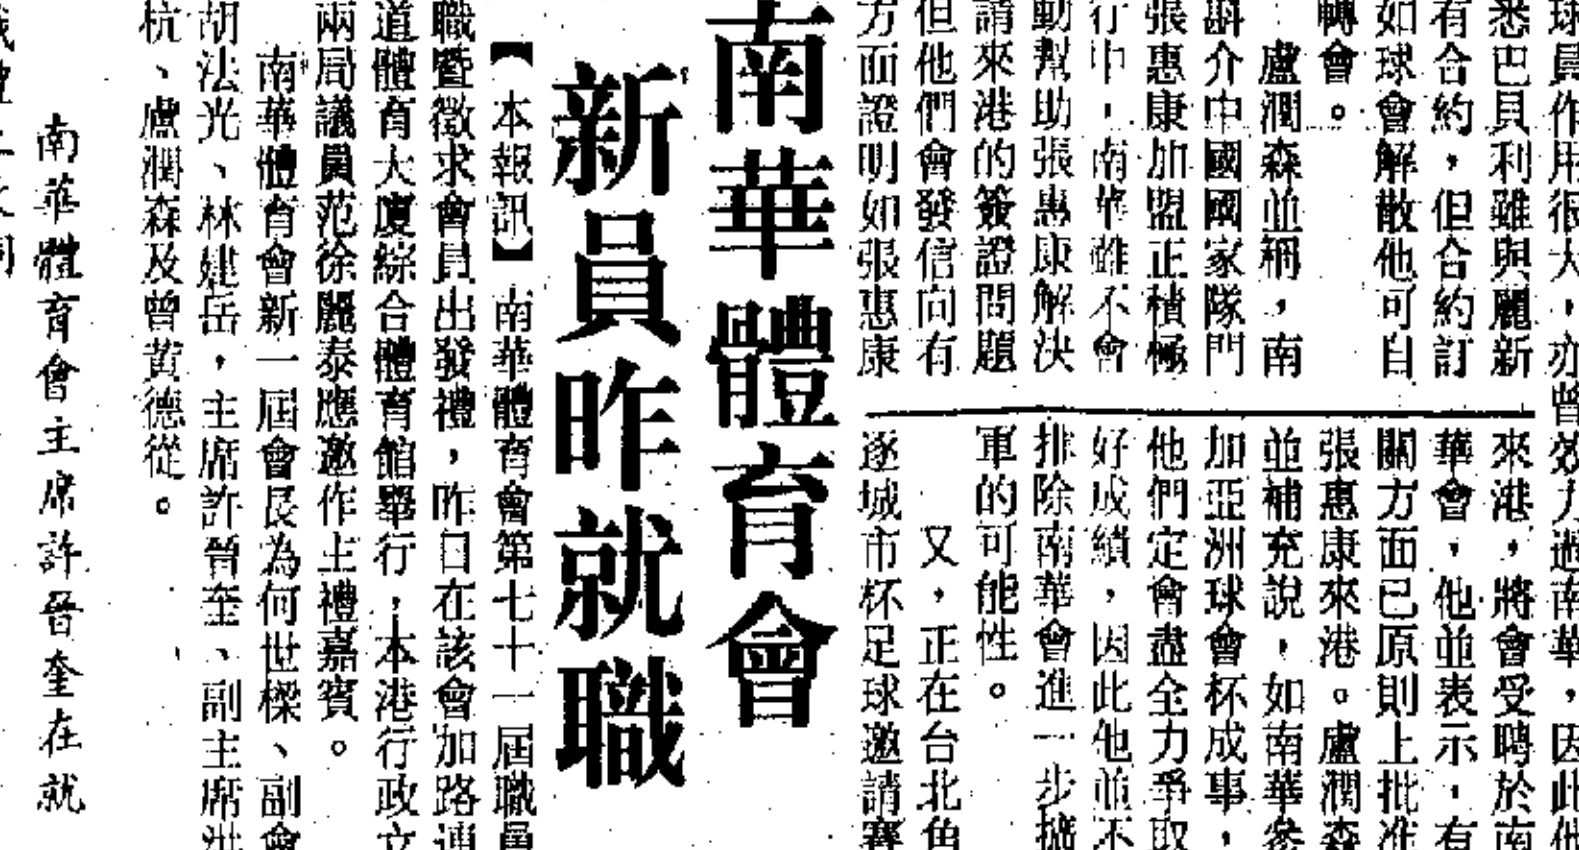 球員作用很大，亦曾效力過南華，因此他
悉巴貝利雖與麗新
有合約，但合約訂
如球會解散他可自
轉會。
盧潤森並稱，南
斟介中國國家隊門
張惠康加盟正積極
行中，南華雖不會
動幫助張惠康解決
請來港的簽證問題
但他們會發信向有
方面證明如張惠康
來港，將會受聘於南
華會，他並表示，有
關方面已原則上批准
張惠康來港。盧潤森
並補充說，如南華參
加亞洲球會杯成事，
他們定會盡全力爭取
好成績，因此他並不
排除南華會進一步擴
軍的可能性。
又，正在台北角
逐城市杯足球邀請賽
南華體育會
新員昨就職
【本報訊】南華體育會第七十一屆職員
職暨徵求會員出發禮，昨日在該會加路連
道體育大廈綜合體育館舉行，本港行政立
兩局議員范徐麗泰應邀作主禮嘉賓。
南華體育會新一屆會長為何世樑、副會
胡法光、林建岳，主席許晉奎、副主席洪
杭、盧潤森及曾黃德從。
南華體育會主席許晉奎在就